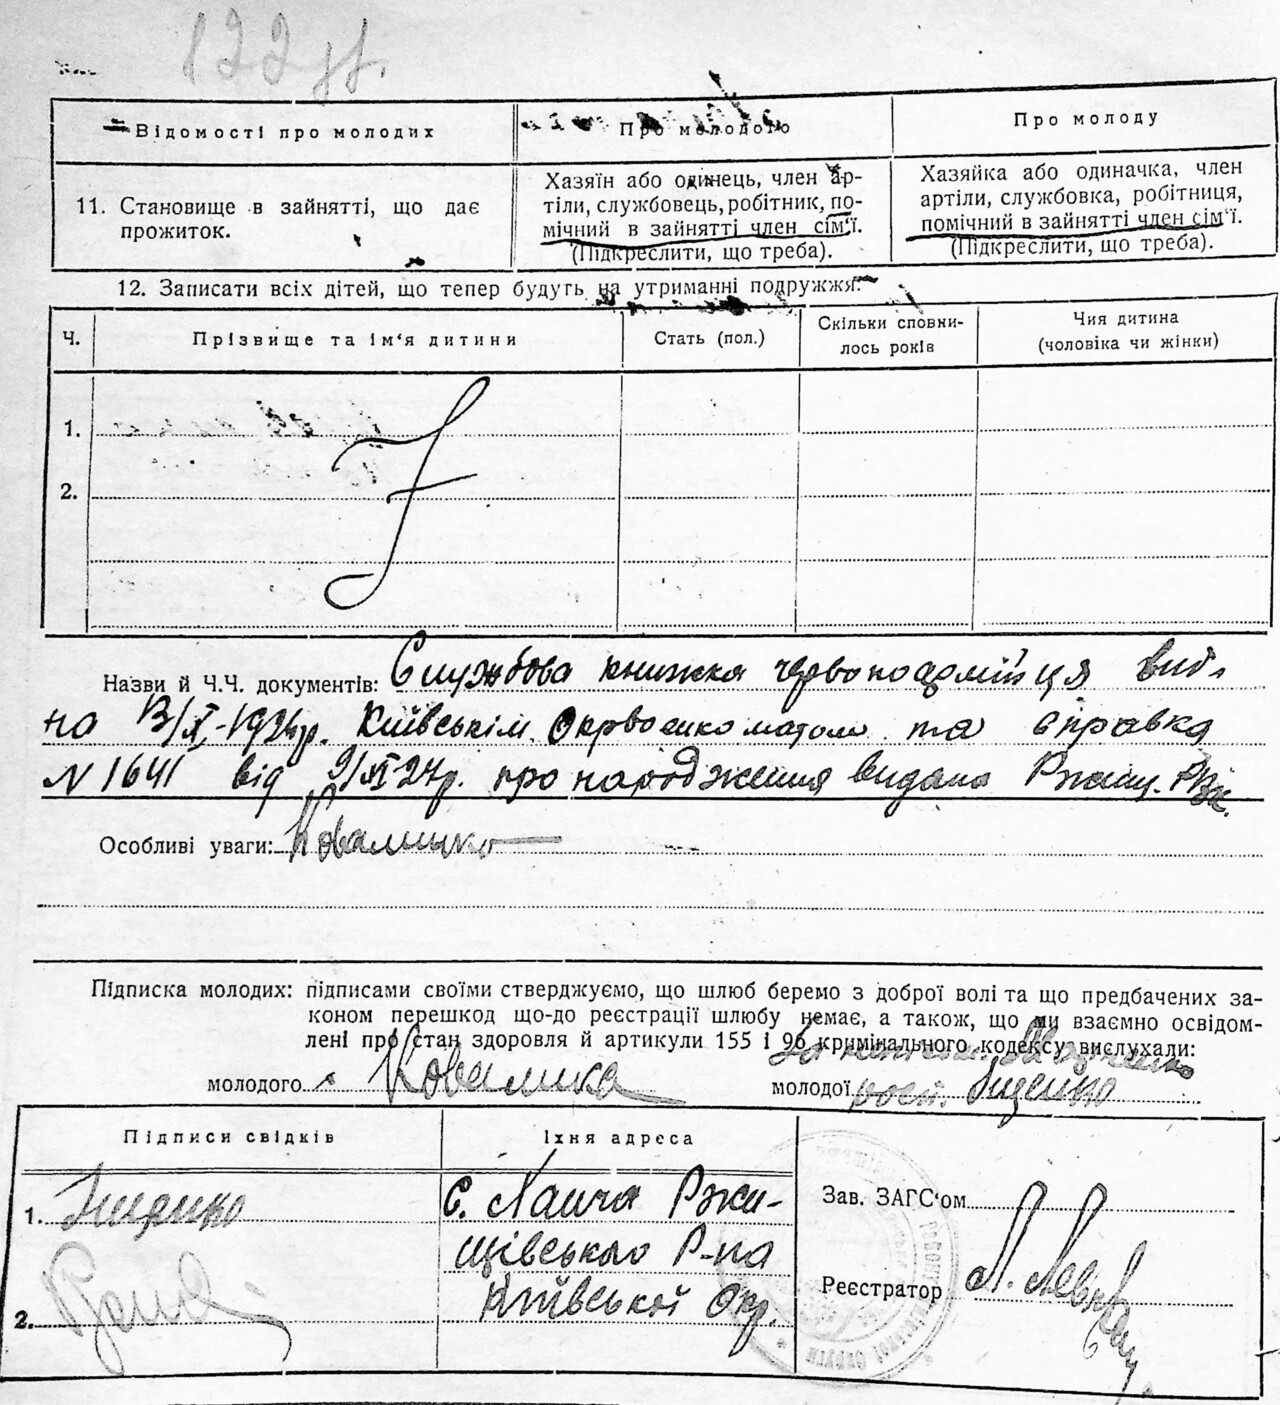 122
Відомості про молодих
Про молодого
Про молоду
11. Становище в зайнятті, що дає
прожиток.
Хазяїн або одинець, член ар-
тіли, службовець, робітник, по-
мічний в зайнятті член сім'ї.
(Підкреслити, що треба).
Хазяйка або одиначка, член
артіли, службовка, робітниця,
помічний в зайнятті член сім'ї.
(Підкреслити, що треба).
12. Записати всіх дітей, що тепер будуть на утриманні подружжя:
Ч.
Прізвище та ім'я дитини
Стать (пол.)
Скільки сповни-
лось років
Чия дитина
(чоловіка чи жінки)
1.
2.
Назви й Ч.Ч. документів: Службова книжка червоноармійця вид-
на 13/XI-1924р. Київськім Окрвоенкоматом та справка
N 1641 від 9/XI-27р. про народження видана Ржищ. РВК.
Особливі уваги:
Підписка молодих: підписами своїми стверджуємо, що шлюб беремо з доброї волі та що предбачених за-
коном перешкод що-до реєстрації шлюбу немає, а також, що ми взаємно освідом-
лені про стан здоровля й артикули 155 і 96 кримінального кодексу вислухали:
молодого
молодої
Підписи свідків
Їхня адреса
1.
с. Панча Ржи-
щівського Р-на
Київської Окр.
2.
Зав. ЗАГС'ом
Реєстратор